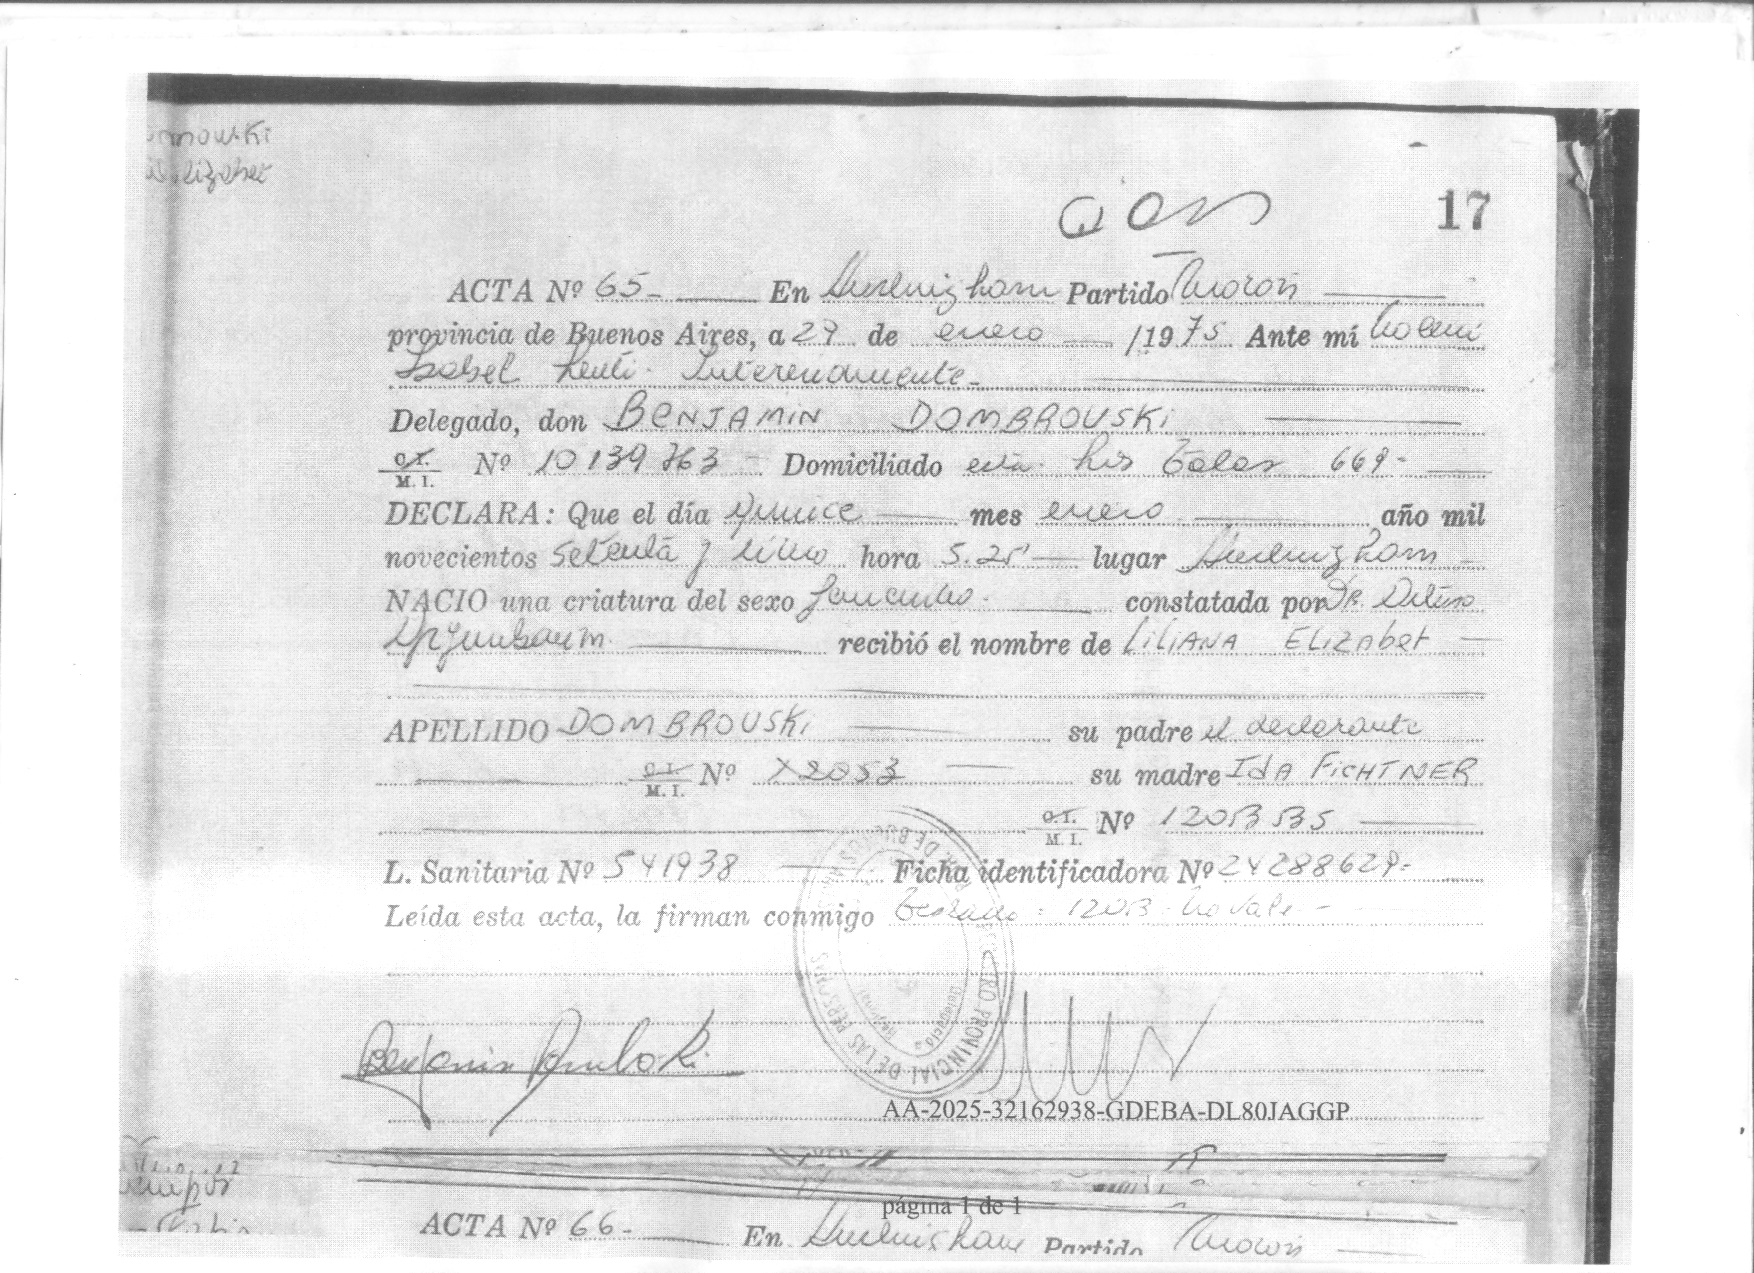 17
ACTA Nº 65 En Hurlingham Partido Morón
provincia de Buenos Aires, a 27 de enero /1975 Ante mí
Isabel Interinamente
Delegado, don BENJAMIN DOMBROUSKI
C.I. M. I. Nº 10139763 Domiciliado esta. Los Talas 669
DECLARA: Que el día quince mes enero año mil
novecientos setenta y cinco hora 5.25 lugar Hurlingham
NACIO una criatura del sexo femenino constatada por Dr.
recibió el nombre de LILIANA ELIZAbet
APELLIDO DOMBROUSKi su padre el declarante
C.I. M. I. Nº su madre IdA FiCHTNER
C.I. M. I. Nº
L. Sanitaria Nº 541938 Ficha identificadora Nº 24288629
Leída esta acta, la firman conmigo
REGISTRO PROVINCIAL DE LAS PERSONAS
Delegación
AA-2025-32162938-GDEBA-DL80JAGGP
página 1 de 1
ACTA Nº 66 En Hurlingham Partido Morón